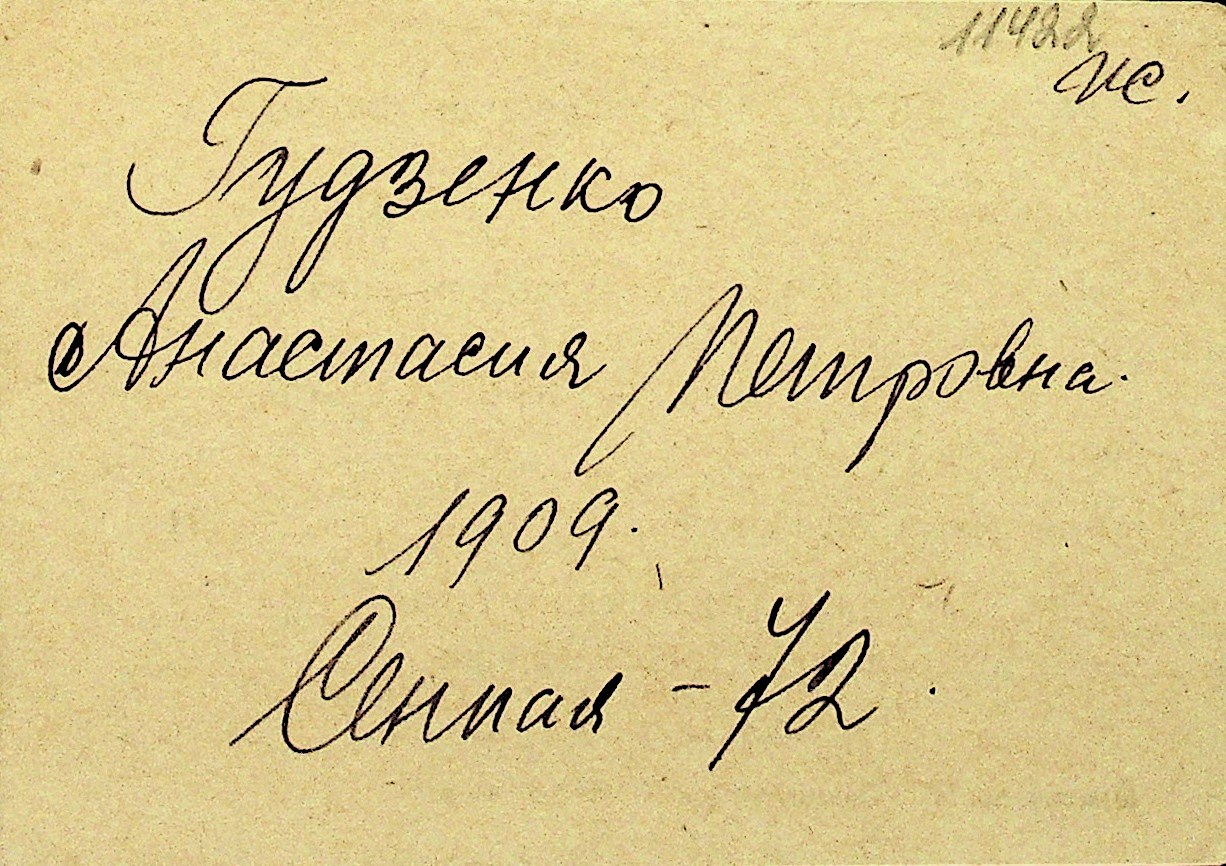 11422
пс.
Гудзенко
Анастасия Петровна.
1909.
Сенная - 72.